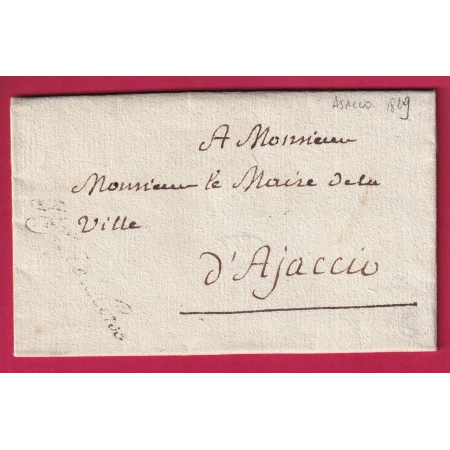 Ajaccio 1809
A Monsieur
Monsieur le Maire de la
Ville
d'Ajaccio